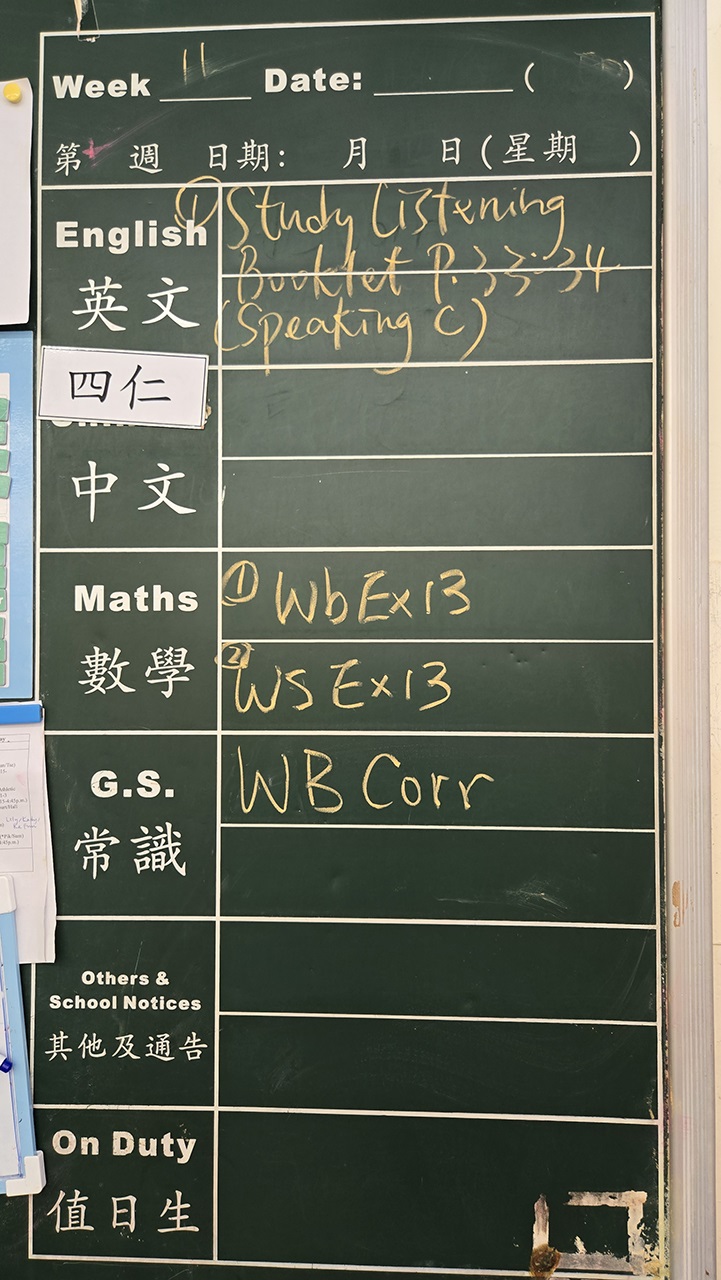 Week 11 Date: ( )
第 週 日期: 月 日(星期 )
English
英文
① Study Listening
Booklet P.33-34
(Speaking C)
四仁
中文
Maths
數學
① Wb Ex 13
② WS Ex 13
G.S.
常識
WB Corr
Others &
School Notices
其他及通告
On Duty
值日生